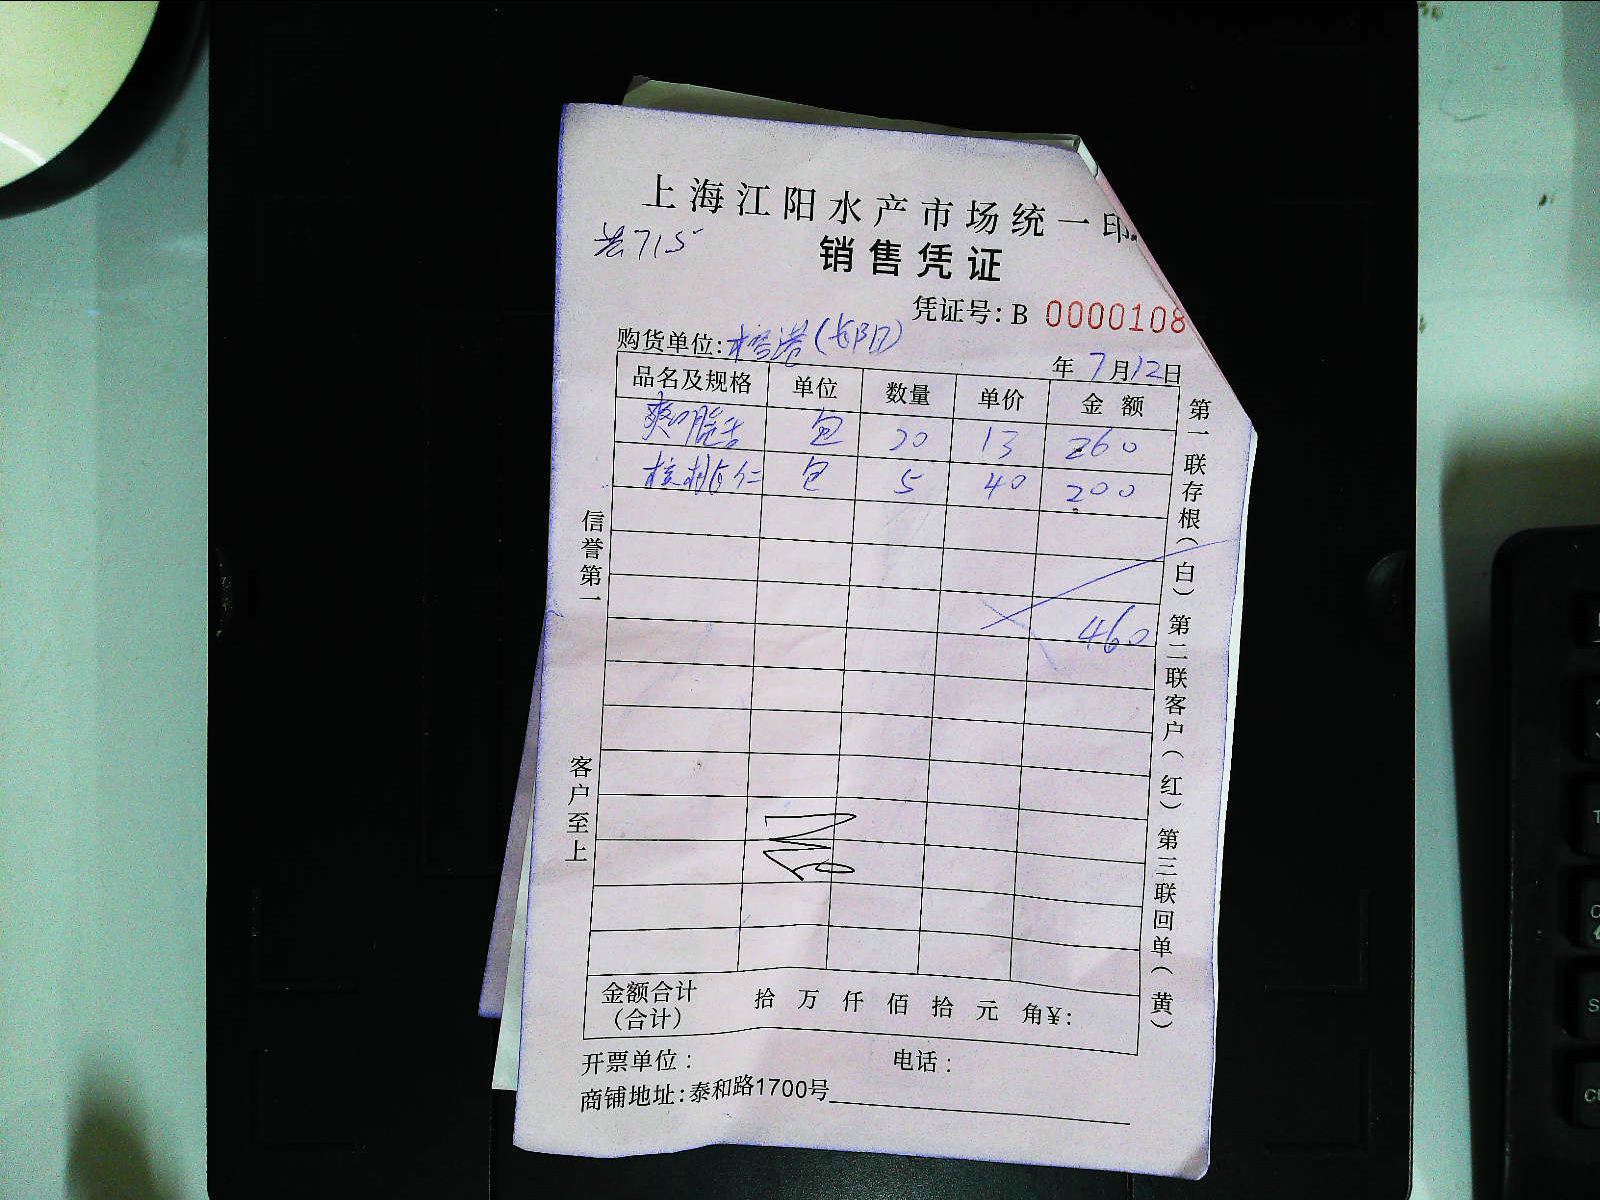 上海江阳水产市场统一印
715
销售凭证
凭证号: B 0000108
购货单位: 榕港(长阳)
年 7月12日
品名及规格 单位 数量 单价 金额
爽口脆舌 包 20 13 260
核桃仁 包 5 40 200
460
信誉第一
客户至上
第一联存根(白) 第二联客户(红) 第三联回单(黄)
金额合计 拾 万 仟 佰 拾 元 角 ¥:
(合计)
开票单位: 电话:
商铺地址: 泰和路1700号